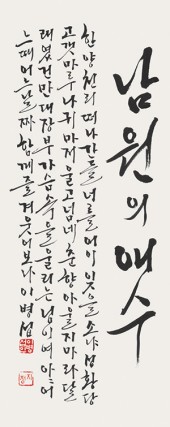 남원의 애수
한양천리 떠나간들 너를 어이 잊을소냐 성황당
고갯마루 나귀마저 울고 넘네 춘향아 울지마라 달
래였건만 대장부 가슴속을 울리는 님이여 아아 어
느때 어느날짜 함께 즐겨 웃어보나